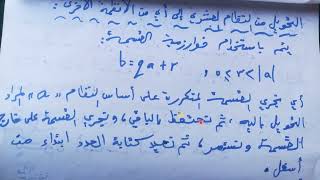 التحويل من النظام العشري إلى أي من الأنظمة الأخرى:
يتم باستخدام خوارزمية القسمة:
b = qa + r , 0 ≤ r < |a|
أي نجري القسمة المتكررة على أساس النظام "a" المراد
التحويل إليه، ثم نحتفظ بالباقي، ونجري القسمة على خارج
القسمة ونستمر، ثم نعيد كتابة العدد ابتداء من
أسفل.